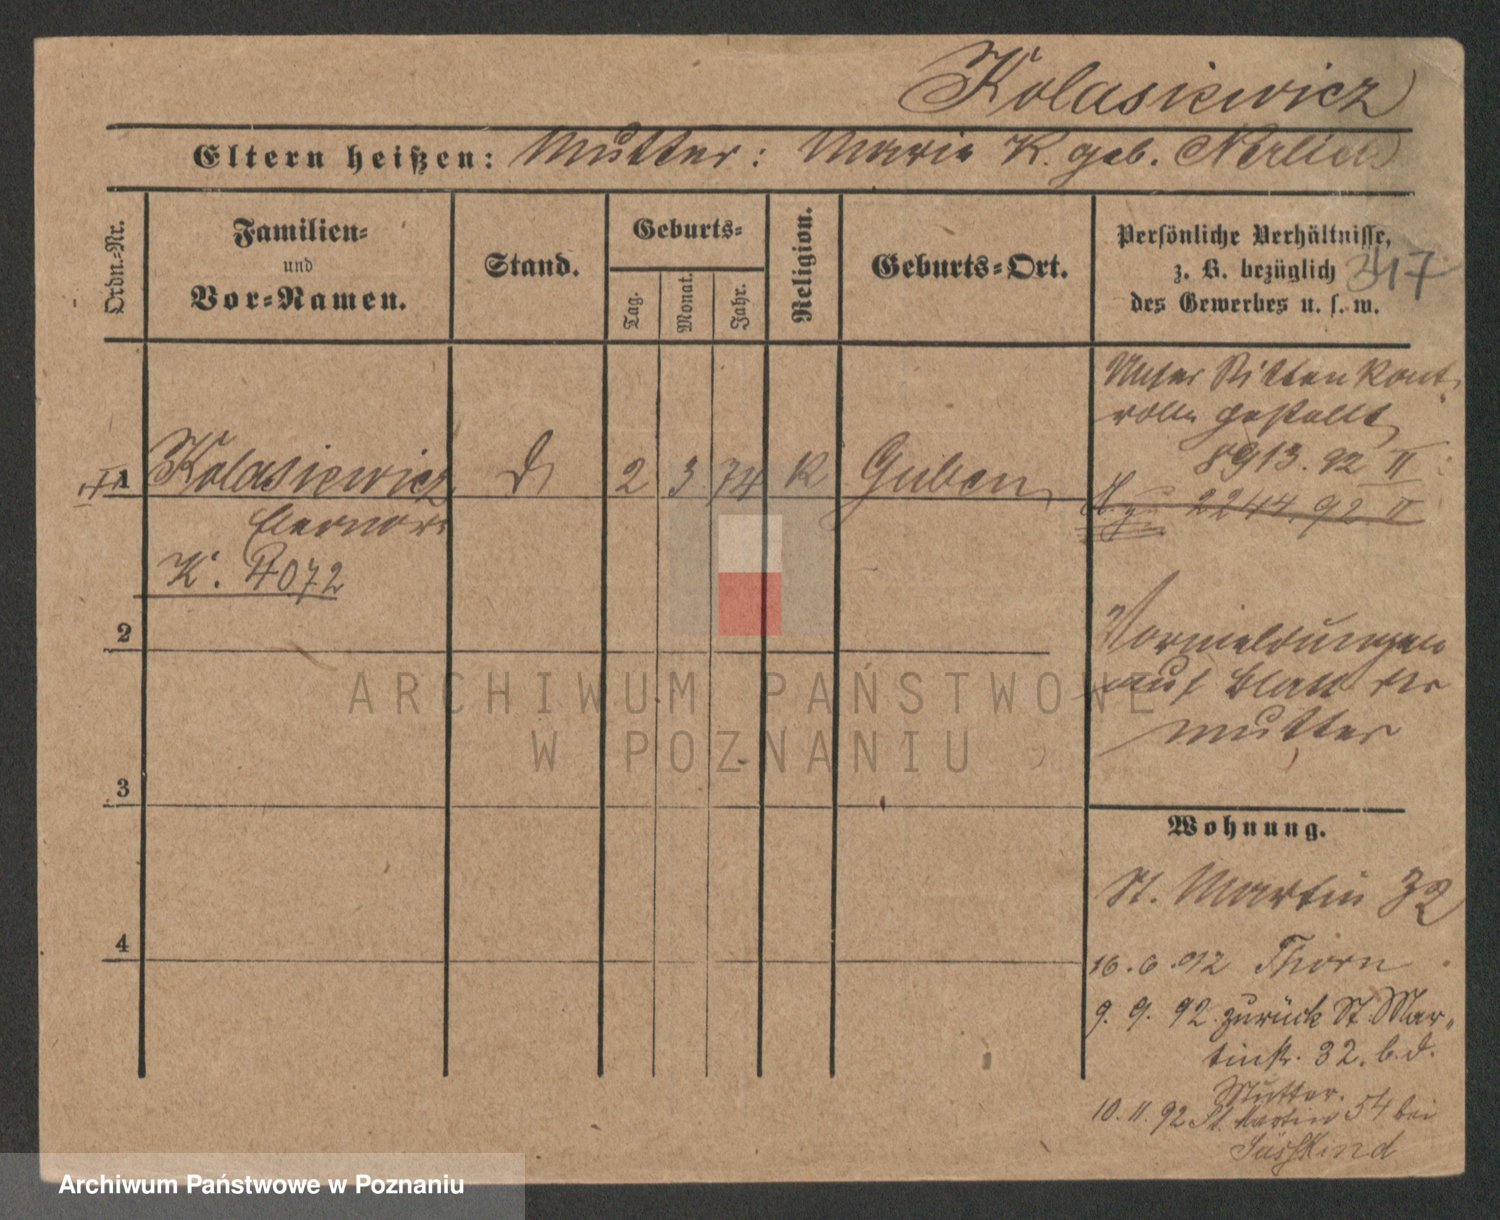 Kolasiewicz
Eltern heißen: Mutter: Marie K. geb. Nerlich
Ordn.-Nr.
Familien-
und
Vor-Namen.
Stand.
Geburts-
Tag.
Monat.
Jahr.
Religion.
Geburts-Ort.
Persönliche Verhältnisse,
z. B. bezüglich
des Gewerbes u. s. w.
347
Unter Sitten Kont-
rolle gestellt
8913.92 II
1 Kolasiewicz 2 3 74 K Guben
2244.92 II
K. 4072
Vormeldungen
auf Blatt der
Mutter
2
3
4
Wohnung.
St. Martin 32
16.6.92 Thorn
9. 9. 92 zurück St. Mar-
tinstr. 32. b. d.
Mutter.
10.11.92 St. Martin 54 bei
Süsskind
ARCHIWUM PAŃSTWOWE
W POZNANIU
Archiwum Państwowe w Poznaniu